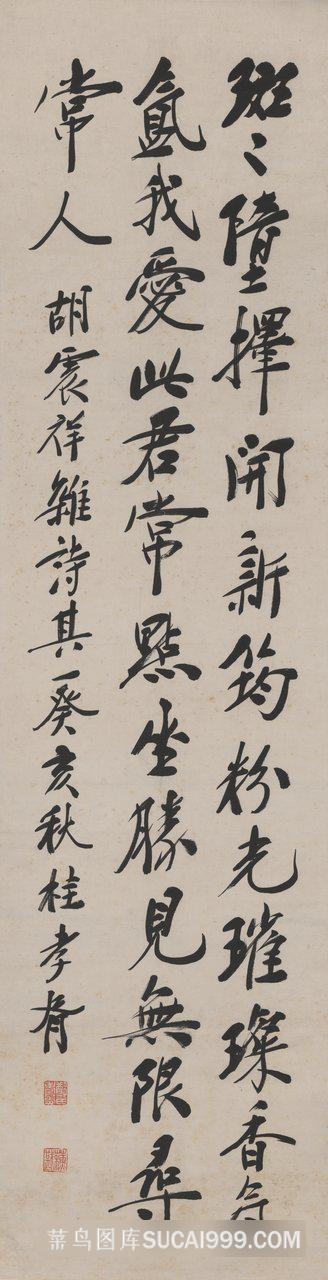 斑〻墮擇開新筠粉光璀璨香氛
氳我愛此君常默坐勝見無限尋
常人
胡震祥雜詩其一癸亥秋桂孝胥
菜鸟图库SUCAI999.COM